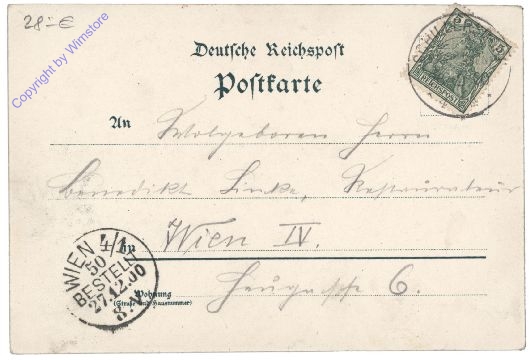 28.-€
Copyright by Wimstore
Deutsche Reichspost
Postkarte
5 5
REICHSPOST
An Wolgeboren Herrn
Benedikt Linke, Restaurateur
in Wien IV.
Wohnung
(Straße und Hausnummer)
Heugasse 6.
WIEN 4/1
50
BESTELLT
27.12.00
8.V